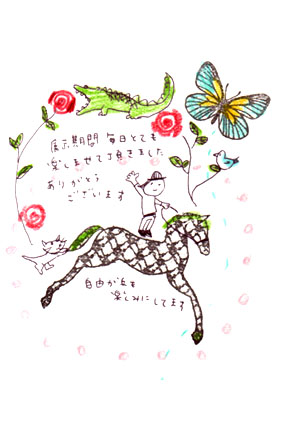 展示期間 毎日とても
楽しませて頂きました
ありがとう
ございます
自由が丘も
楽しみにしてます